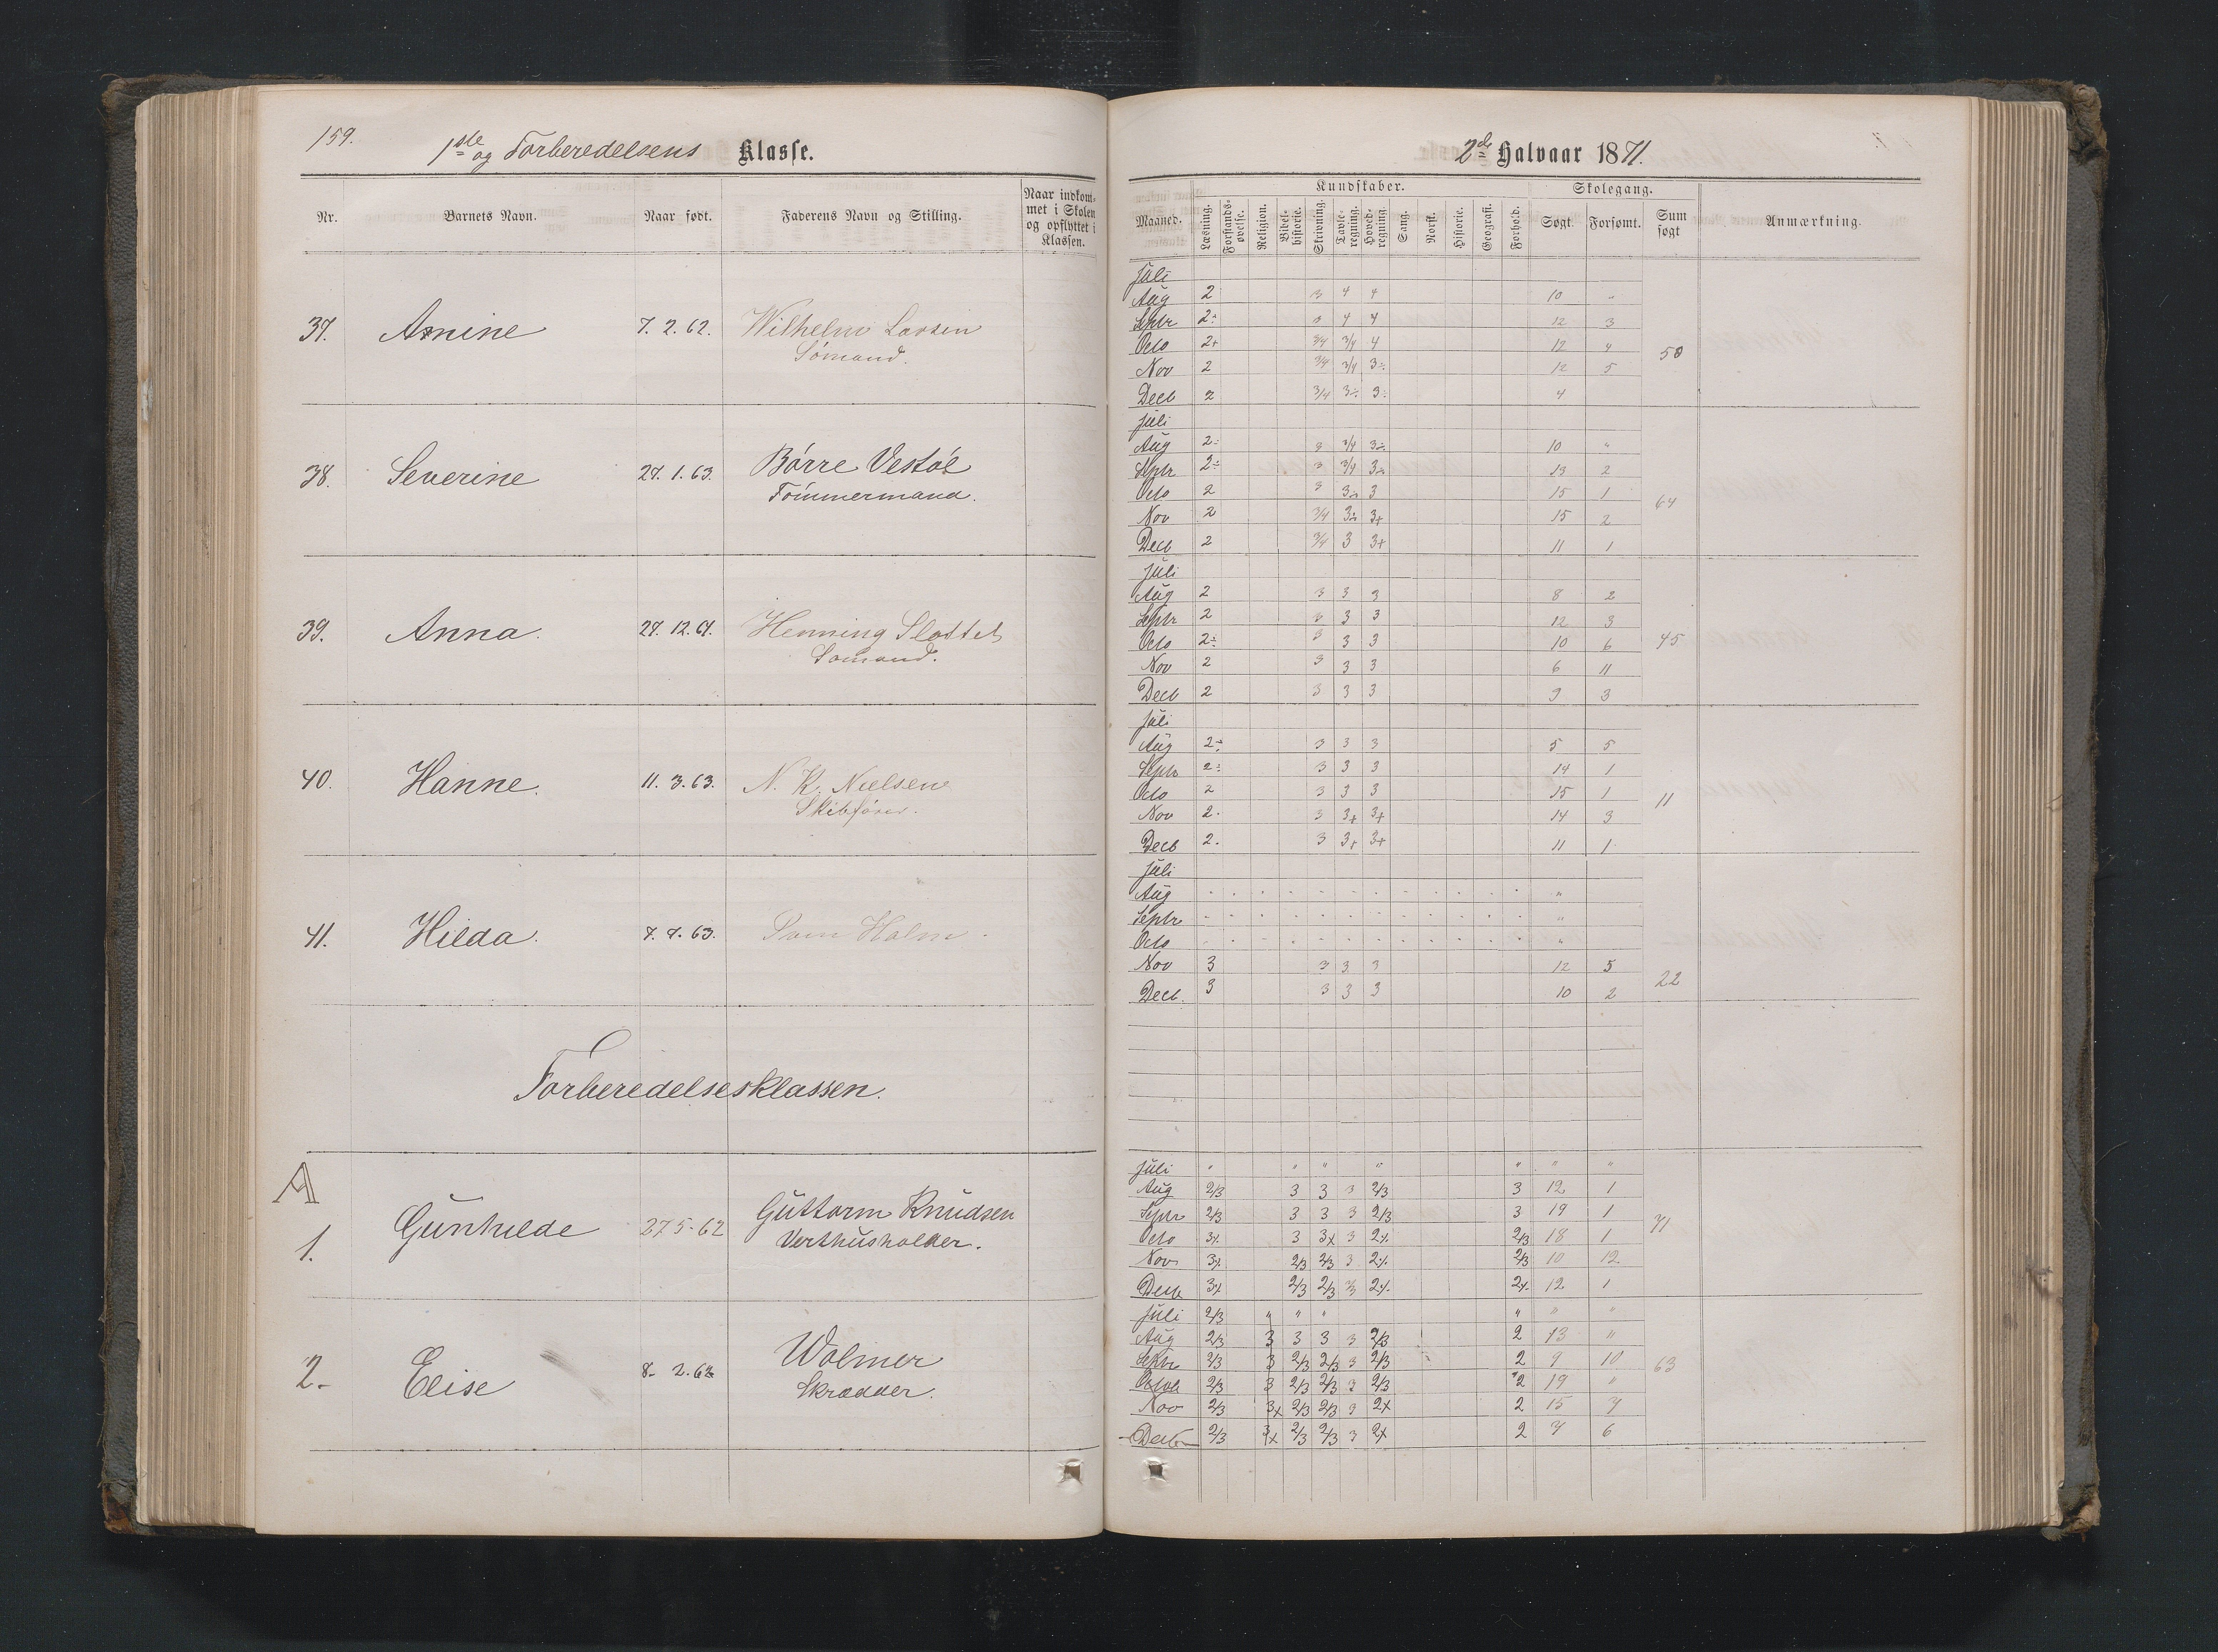 159.
1ste og Forberedelsens Klasse.
Nr. Barnets Navn. Naar født. Faderens Navn og Stilling. Naar indkom-
met i Skolen
og opflyttet i
Klassen.
37. Asnine 7. 2. 62. Wilhelm Larsen
Sömand.
38. Severine 27. 1. 63. Börre Vestöl
Tömmermand.
39. Anna. 27. 12. 61. Henning Slottet
Sömand.
40. Hanne. 11. 3. 63. N. K. Nielsen
Skibsförer.
41. Hilda. 7. 7. 63. Holm
Forberedelsesklassen.
A
1. Gunhilde 27 5-62 Guttorm Knudsen
Verthusholder.
2. Elise 8- 2. 62 Wolmer
Skrædder.
2det Halvaar 1871.
Kundskaber. Skolegang.
Maaned. Læsning. Forstands-
øvelse. Religion. Bibel-
historie. Skrivning. Tavle-
regning. Hoved-
regning. Sang. Norsk. Historie. Geografi. Forhold. Søgt. Forsømt. Sum
søgt Anmærkning.
Juli
Aug 2 3 4 4 10 "
Septr 2÷ 3 4 4 12 3
Octo 2+ 3/4 3/4 4 12 4
50
Nov 2 3/4 3/4 3÷ 12 5
Decb 2 3/4 3÷ 3÷ 4
Juli
Aug 2÷ 3 3/4 3÷ 10 "
Septr 2÷ 3 3/4 3÷ 13 2
Octo 2 3 3÷ 3 15 1
64
Nov 2 3/4 3÷ 3+ 15 2
Decb 2 3/4 3 3+ 11 1
Juli
Aug 2 3 3 3 8 2
Septr 2 3 3 3 12 3
Octo 2÷ 3 3 3 10 6 45
Nov 2 3 3 3 6 11
Decb 2 3 3 3 9 3
Juli
Aug 2÷ 3 3 3 5 5
Septr 2÷ 3 3 3 14 1
Octo 2 3 3 3 15 1
11
Nov 2. 3 3+ 3+ 14 3
Decb 2. 3 3+ 3+ 11 1
Juli
Aug "
Septr "
Octo "
Nov 3 3 3 3 12 5
22
Decb. 3 3 3 3 10 2
Juli " " " " " " "
Aug 2/3 3 3 3 2/3 3 12 1
Septr 2/3 3 3 3 2/3 3 19 1
71
Octo 3% 3 3x 3 2% 2/3 18 1
Nov 3% 2/3 2/3 3 2% 2/3 10 12
Decb 3% 2/3 2/3 3 2% 2% 12 1
Juli 2/3 " " " " " "
Aug 2/3 3 3 3 3 2/3 2 13 "
Septr 2/3 3 2/3 2/3 3 2/3 2 9 10 63
Octob 2/3 3 2/3 2/3 3 2/3 2 19 "
Nov 2/3 3x 2/3 2/3 3 2x 2 15 4
Decb 2/3 3x 2/3 2/3 3 2x 2 7 6